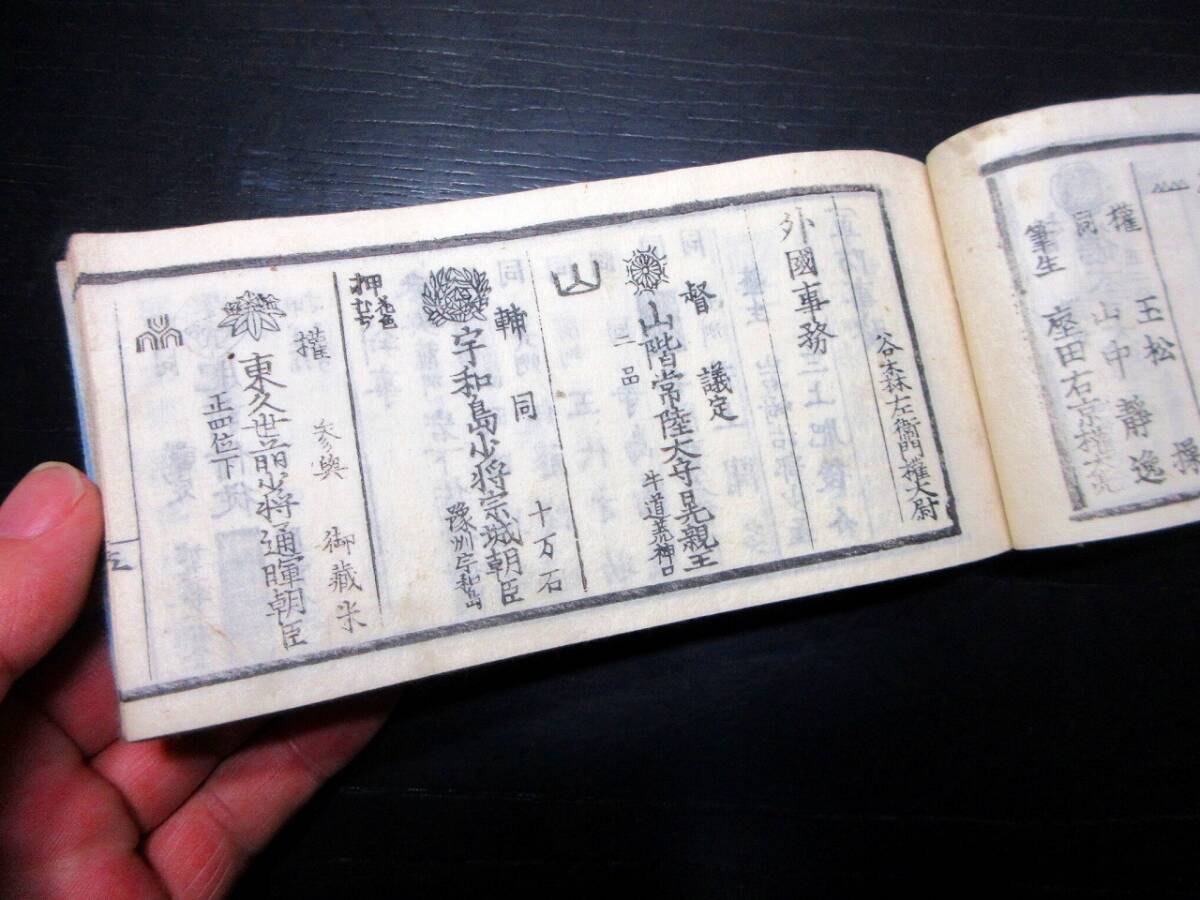 權 玉松 操
同 山中靜逸
筆生 座田右京權大亮
谷森左衞門權大尉
外國事務
督 議定
山階常陸大守晃親王
二品 牛道荒神口
輔 同 十万石
宇和島少將宗城朝臣
豫州宇和島
押
權 参與 御藏米
東久世前少將通暉朝臣
正四位下